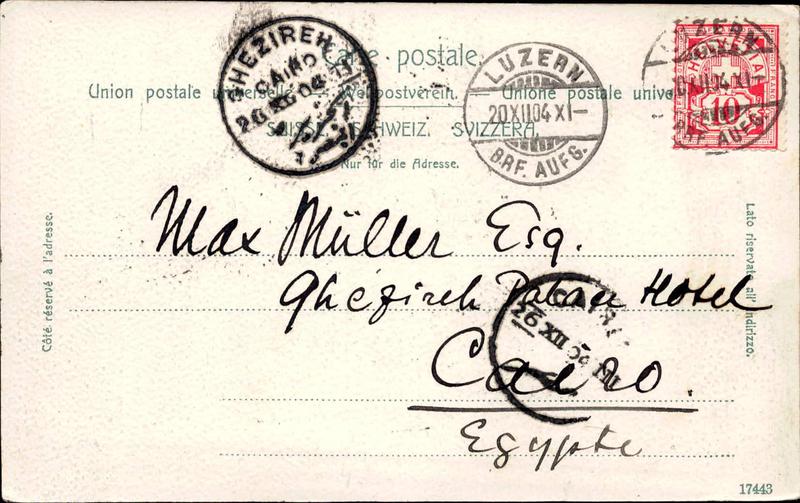 Carte postale.
Union postale universelle. Weltpostverein. Unione postale unive
SUISSE. SCHWEIZ. SVIZZERA.
Nur für die Adresse.
GHEZIREH
CAIRO
26 XII 04
LUZERN
20XII04 XI–
BRF. AUFG.
LUZERN
XII04 XI–
BRF. AUFG.
HELVETIA
FRANCO
10
Côté réservé à l'adresse.
Lato riservato all' indirizzo.
Max Müller Esq.
Ghezireh Palace Hotel
Cairo.
Egypte
CAIRO
26 XII 04
17443